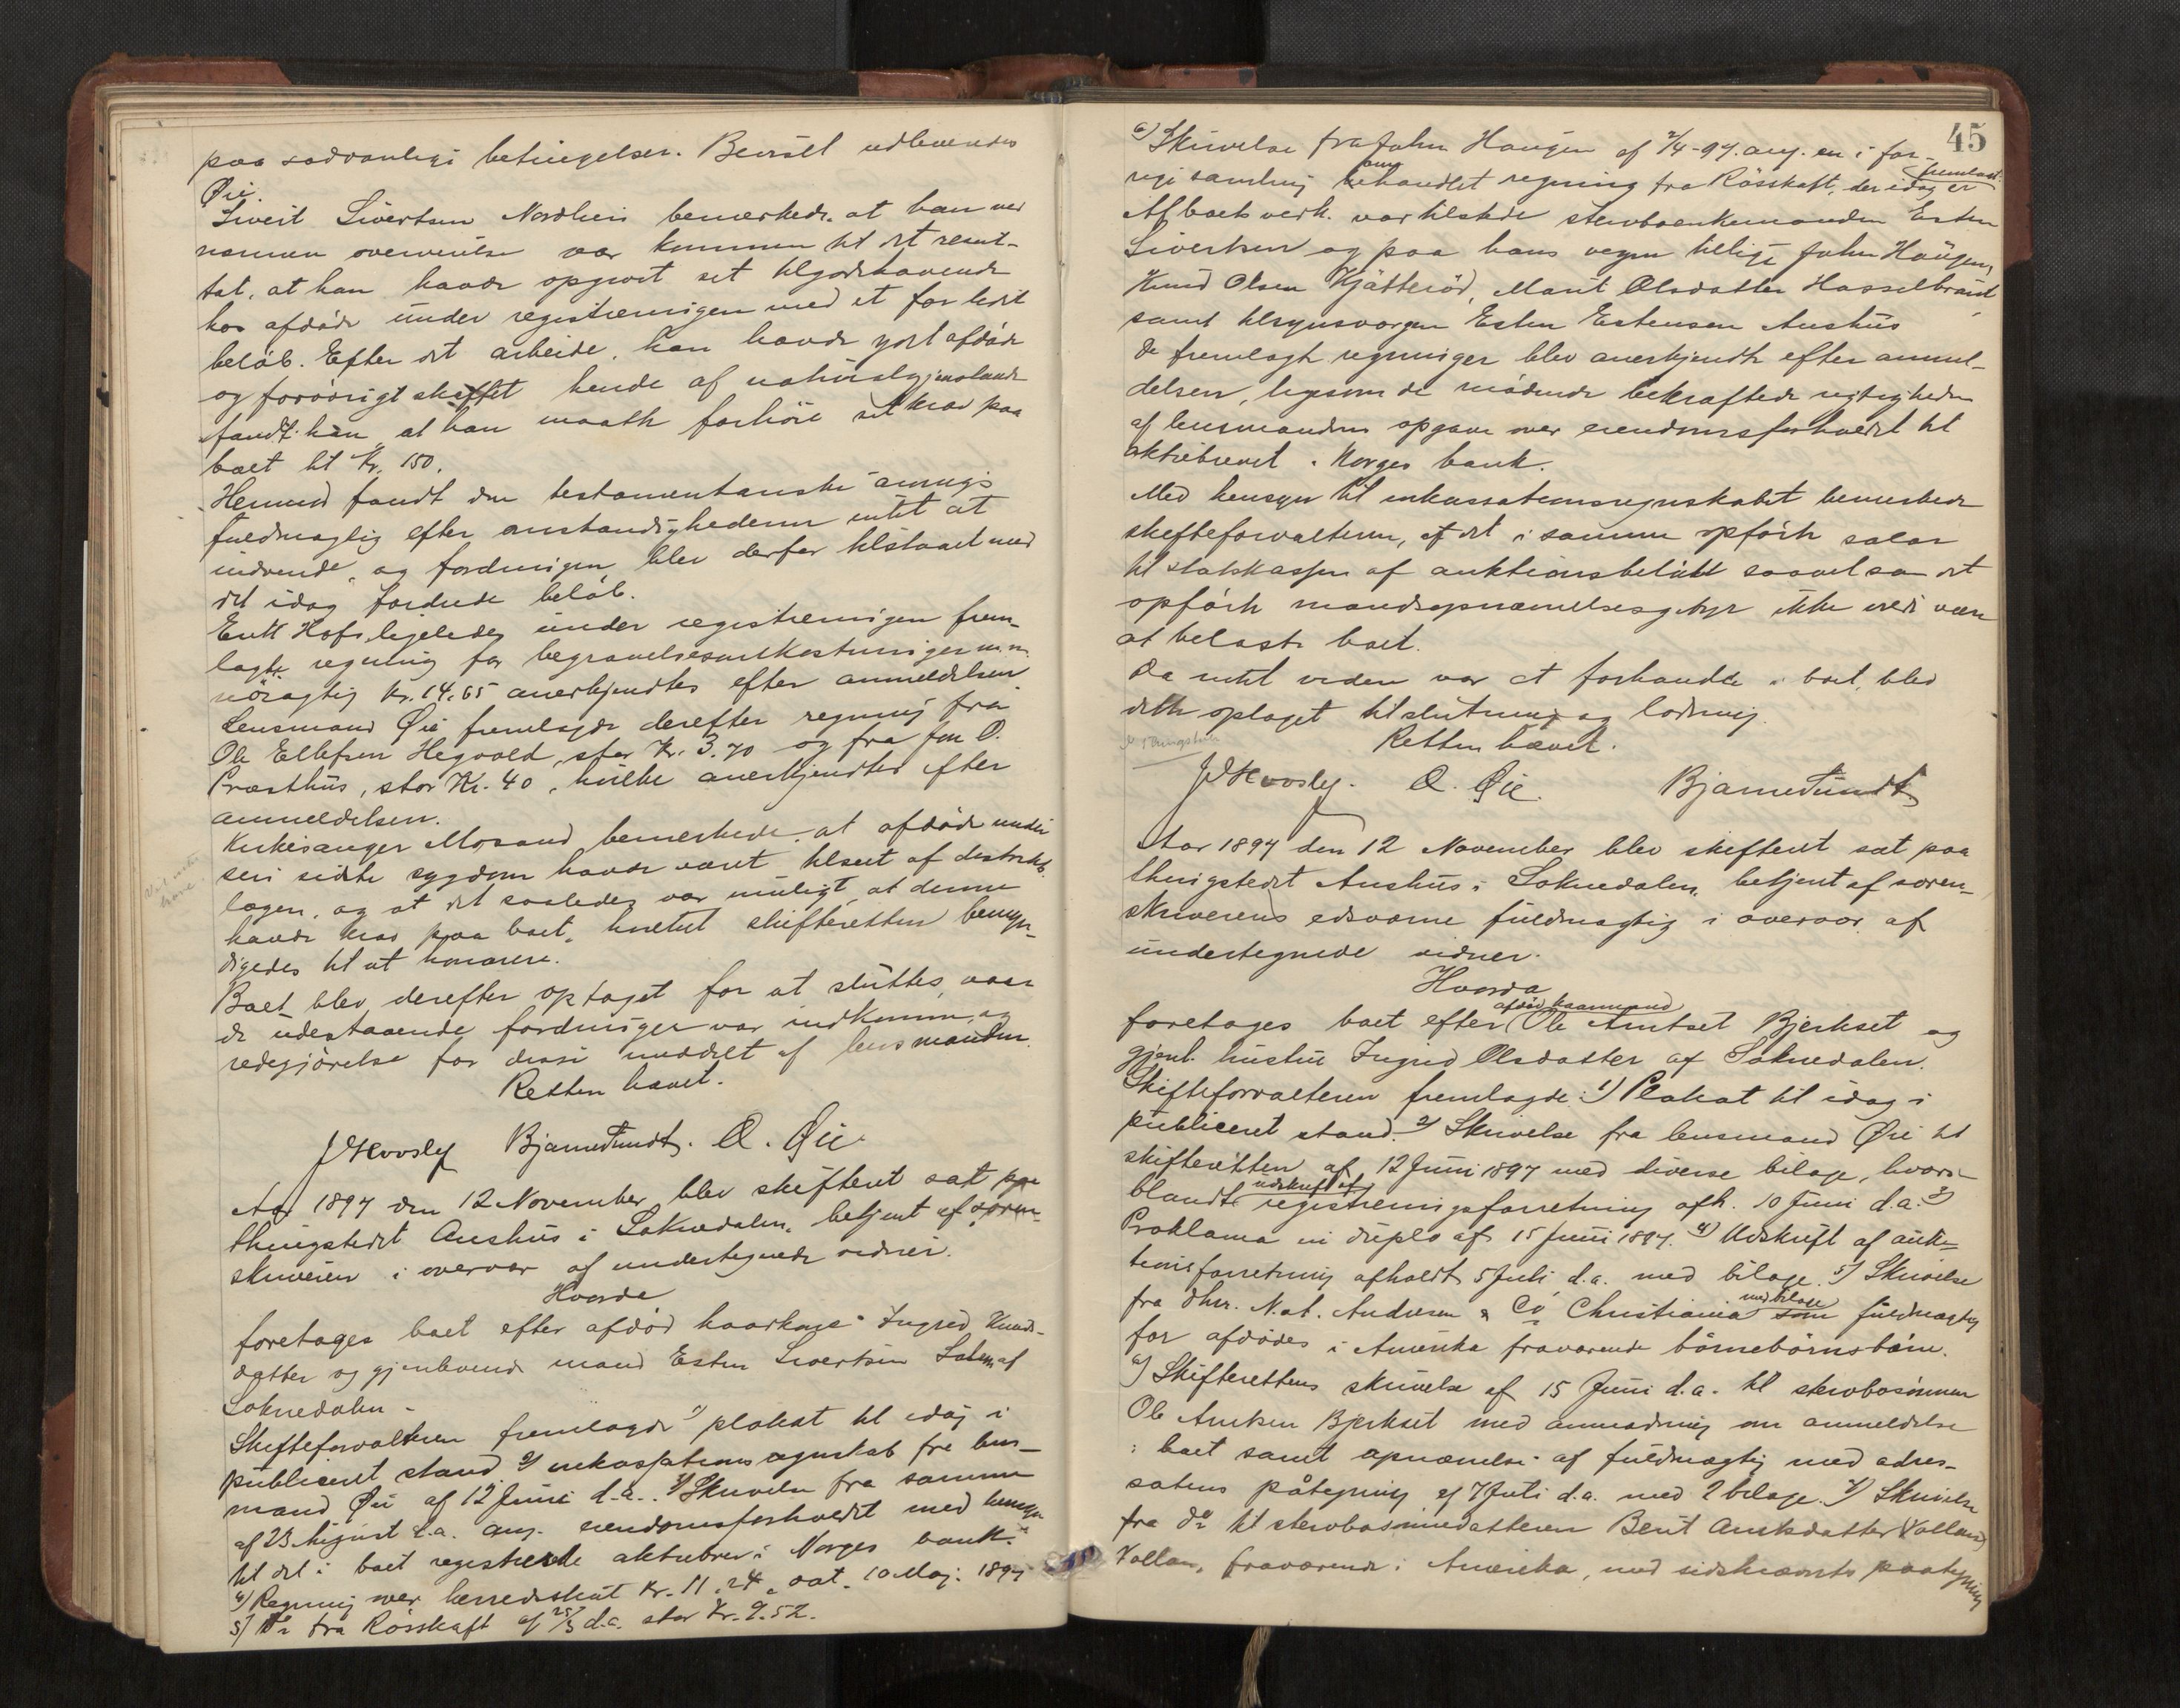 paa sædvanlige betingelser. Bevist udleveredes
Øie.
Sivert Sivertsen Nordlien bemerkede, at han ved
nærmere overveielse var kommen til det resul-
tat, at han havde opgivet sit tilgodehavende
hos afdøde under registreringen med et for lidet
beløb. Efter det arbeide, han havde gjort afdøde
og forøvrigt skaffet hende af naturalgjenstande
fandt han, at han maatte forhøie sit krav paa
boet til Kr. 150.
Herimod fandt den testamentariske arvings
fuldmægtig efter omstændighederne intet at
indvende, og fordringen blev derfor tilstaaet med
det idag fordrede beløb.
Enk Hofs ligeledes under registreringen frem-
lagte regning for begravelsesomkostninger m.m.
nøiagtig Kr. 14.65 anerkjendtes efter anmeldelsen
Lensmand Øie fremlagde derefter regning fra
Ole Ellefsen Hegvold, stor Kr. 3.70 og fra Jon O.
Præsthus, stor Kr. 40, hvilke anerkjendtes efter
anmeldelsen.
Kirkesanger Mosand bemerkede, at afdøde under
sin sidste sygdom havde været tilseet af distrikts-
lægen, og at det saaledes var muligt, at denne
havde krav paa boet, hvilket skifteretten bemyn-
digedes til at honorere.
Boet blev derefter optaget for at sluttes, naar
de udestaaende fordringer var indkomne og
redegjørelse for disse meddelt af lensmanden.
Retten hævet.
J Hoosly Bjarne Tundt. O. Øie.
Aar 1897 den 12 November blev skifteret sat paa
thingstedet Aushus i Soknedalen, betjent af soren-
skriveren i overvær af undertegnede vidner.
Hvorda
foretages boet efter afdød kaarkone Ingrid Knuds-
datter og gjenlevende mand Esten Sivertsen Solem af
Soknedalen.
Skifteforvalteren fremlagde 1) plakat til idag i
publiceret stand 2) inkassationsregnskab fra lens-
mand Øie af 12 Juni d.a. 3) Skrivelse fra samme
af 23 August d.a. ang. eiendomsforholdet med hensyn
til det i boet registrerede aktiebrev i Norges bank.
4) Regning over herredsskat Kr. 11.24, dat. 10 Maj. 1897
5) Do fra Rösskaft af 25/3 d.a. stor Kr. 9.52.
45
6) Skrivelse fra John Haugen af 2/4-97. ang. en i for-
rige samling omhandlet regning fra Rösskaft, der idag er fremlagt.
Af boets vedk. var tilstede stervboenkemanden Esten
Sivertsen og paa hans vegne tillige John Haugen,
Knud Olsen Kjätteröd, Marit Olsdatter Hasselbrænd
samt tilsynsvergen Esten Estensen Aushus
De fremlagte regninger blev anerkjendte efter anmel-
delsen, ligesom de mødende bekræftede rigtigheden
af lensmandens opgave over eiendomsforholdet til
aktiebrevet i Norges bank.
Med hensyn til inkassationsregnskabet bemerkede
skifteforvalteren, at det i samme opførte salær
til statskassen af auktionsbeløbet saavel som det
opførte mandsopnævnelsesgebyr ikke vilde være
at belaste boet.
Da intet videre var at forhandle i boet, blev
dette optaget til slutning og lodning.
Retten hævet.
J Hoosly. O. Øie. Bjarne Tundt
Aar 1897 den 12 November blev skifteret sat paa
thingstedet Aushus i Soknedalen, betjent af soren-
skriverens edsvorne fuldmægtig i overvær af
undertegnede vidner.
Hvorda
foretages boet efter afdød kaarmand Ole Arntset Bjerkset og
gjenl. hustru Ingrid Olsdatter af Soknedalen.
Skifteforvalteren fremlagde: 1) Plakat til idag i
publiceret stand. 2) Skrivelse fra lensmand Øie til
skifteretten af 12 Juni 1897 med diverse bilage, hvori-
blandt udskrift af registreringsforretning afh. 10 Juni d.a. 3)
Proklama in duplo af 15 Juni 1897. 4) Udskrift af auk-
tionsforretning afholdt 5 Juli d.a. med bilage. 5) Skrivelse
fra Dhrr. N.A. Andresen & Co Christiania med bilage som fuldmægtig
for afdødes i Amerika fraværende børnebørnsbørn.
6) Skifterettens skrivelse af 15 Juni d.a. til stervbosønnen
Ole Arntsen Bjerkset med anmodning om anmeldelse
i boet samt opnævnelse af fuldmægtig med adres-
satens påtegning af 7 Juli d.a. med 2 bilage. 7) Skrivelse
fra do til stervbosønnedatteren Berit Arntsdatter Vollan,
Vollan, fraværende i Amerika, med sidstnævntes paategning